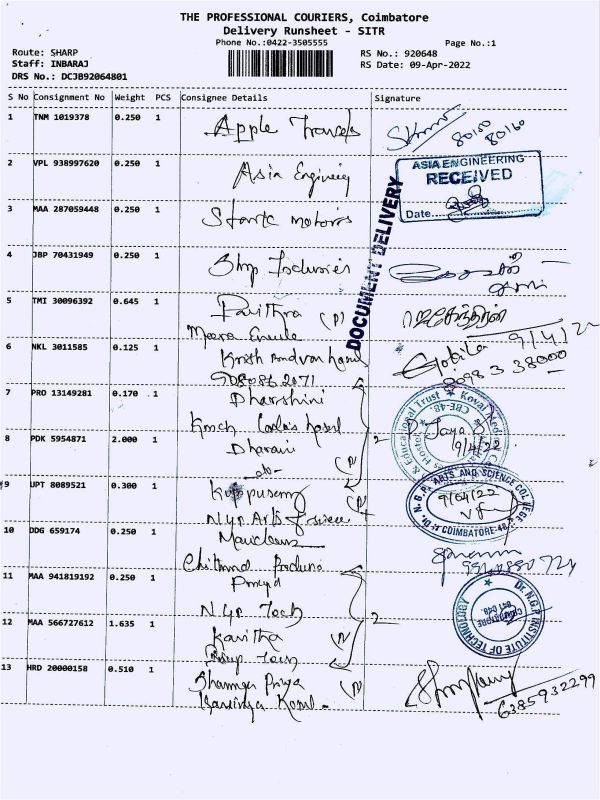 THE PROFESSIONAL COURIERS, Coimbatore
Delivery Runsheet - SITR
Phone No.:0422-3505555
Page No.:1
Route: SHARP
RS No.: 920648
Staff: INBARAJ
RS Date: 09-Apr-2022
DRS No.: DCJB92064801
S No Consignment No Weight PCS Consignee Details Signature
1 TNM 1019378 0.250 1 Apple Travels
80150
80160
2 VPL 938997620 0.250 1 Asia Engineering
ASIA ENGINEERING
RECEIVED
Date
DOCUMENT DELIVERY
3 MAA 287059448 0.250 1 motors
4 JBP 70431949 0.250 1
5 TMI 30096392 0.645 1 Pavithra (P)
ராஜேந்திரன்
9/4/22
6 NKL 3011585 0.125 1
Gokila
8098 3 38000
9080862071
7 PRO 13149281 0.170 1 Dharshini
Kmch
& Educational Trust
Kovai Medical
CBE-48.
Hostel
Jaya
9/4/22
8 PDK 5954871 2.000 1 Dharani
-do- (P)
2
9 UPT 8089521 0.300 1 Kuppusamy (P)
Dr. N.G.P. ARTS AND SCIENCE COLLEGE
9/04/22
COIMBATORE-48
NGP Arts & science
10 DDG 659174 0.250 1
11 MAA 941819192 0.250 1
NGP Tech
Dr. N.G.P. INSTITUTE OF TECHNOLOGY
COIMBATORE
641 048.
12 MAA 566727612 1.635 1 Kavitha (P)
2
13 HRD 20000158 0.510 1 Priya (P)
6385932299